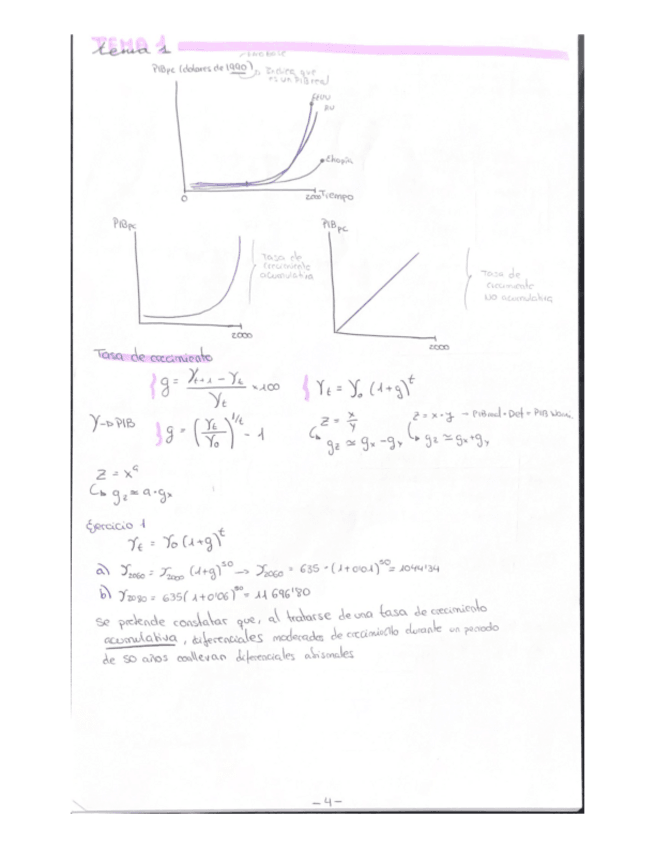 TEMA 1
tema 1
PIBpc (dolares de 1990) Indica que
es un PIB real
EEUU
RU
Chopin
0
2000 Tiempo
PIBpc
Tasa de
crecimiento
acumulativa
2000
PIBpc
Tasa de
crecimiento
NO acumulativa
2000
Tasa de crecimiento
g = (Yt+1 - Yt)/Yt ×100
Yt = Y0 (1+g)^t
Y→PIB
g = (Yt/Y0)^1/t - 1
z = x/y
gz ≃ gx - gy
z = x·y → PIB real · Def = PIB
gz ≃ gx+gy
z = x^a
gz ≃ a·gx
Ejercicio 1
Yt = Y0 (1+g)^t
a) Y2060 = Y2000 (1+g)^50 → Y2060 = 635 · (1+0'01)^50 = 1044'34
b) Y2080 = 635(1+0'06)^50 = 11 696'80
Se pretende constatar que, al tratarse de una tasa de crecimiento
acumulativa, diferenciales moderados de crecimiento durante un periodo
de 50 años conllevan diferenciales abismales
-4-